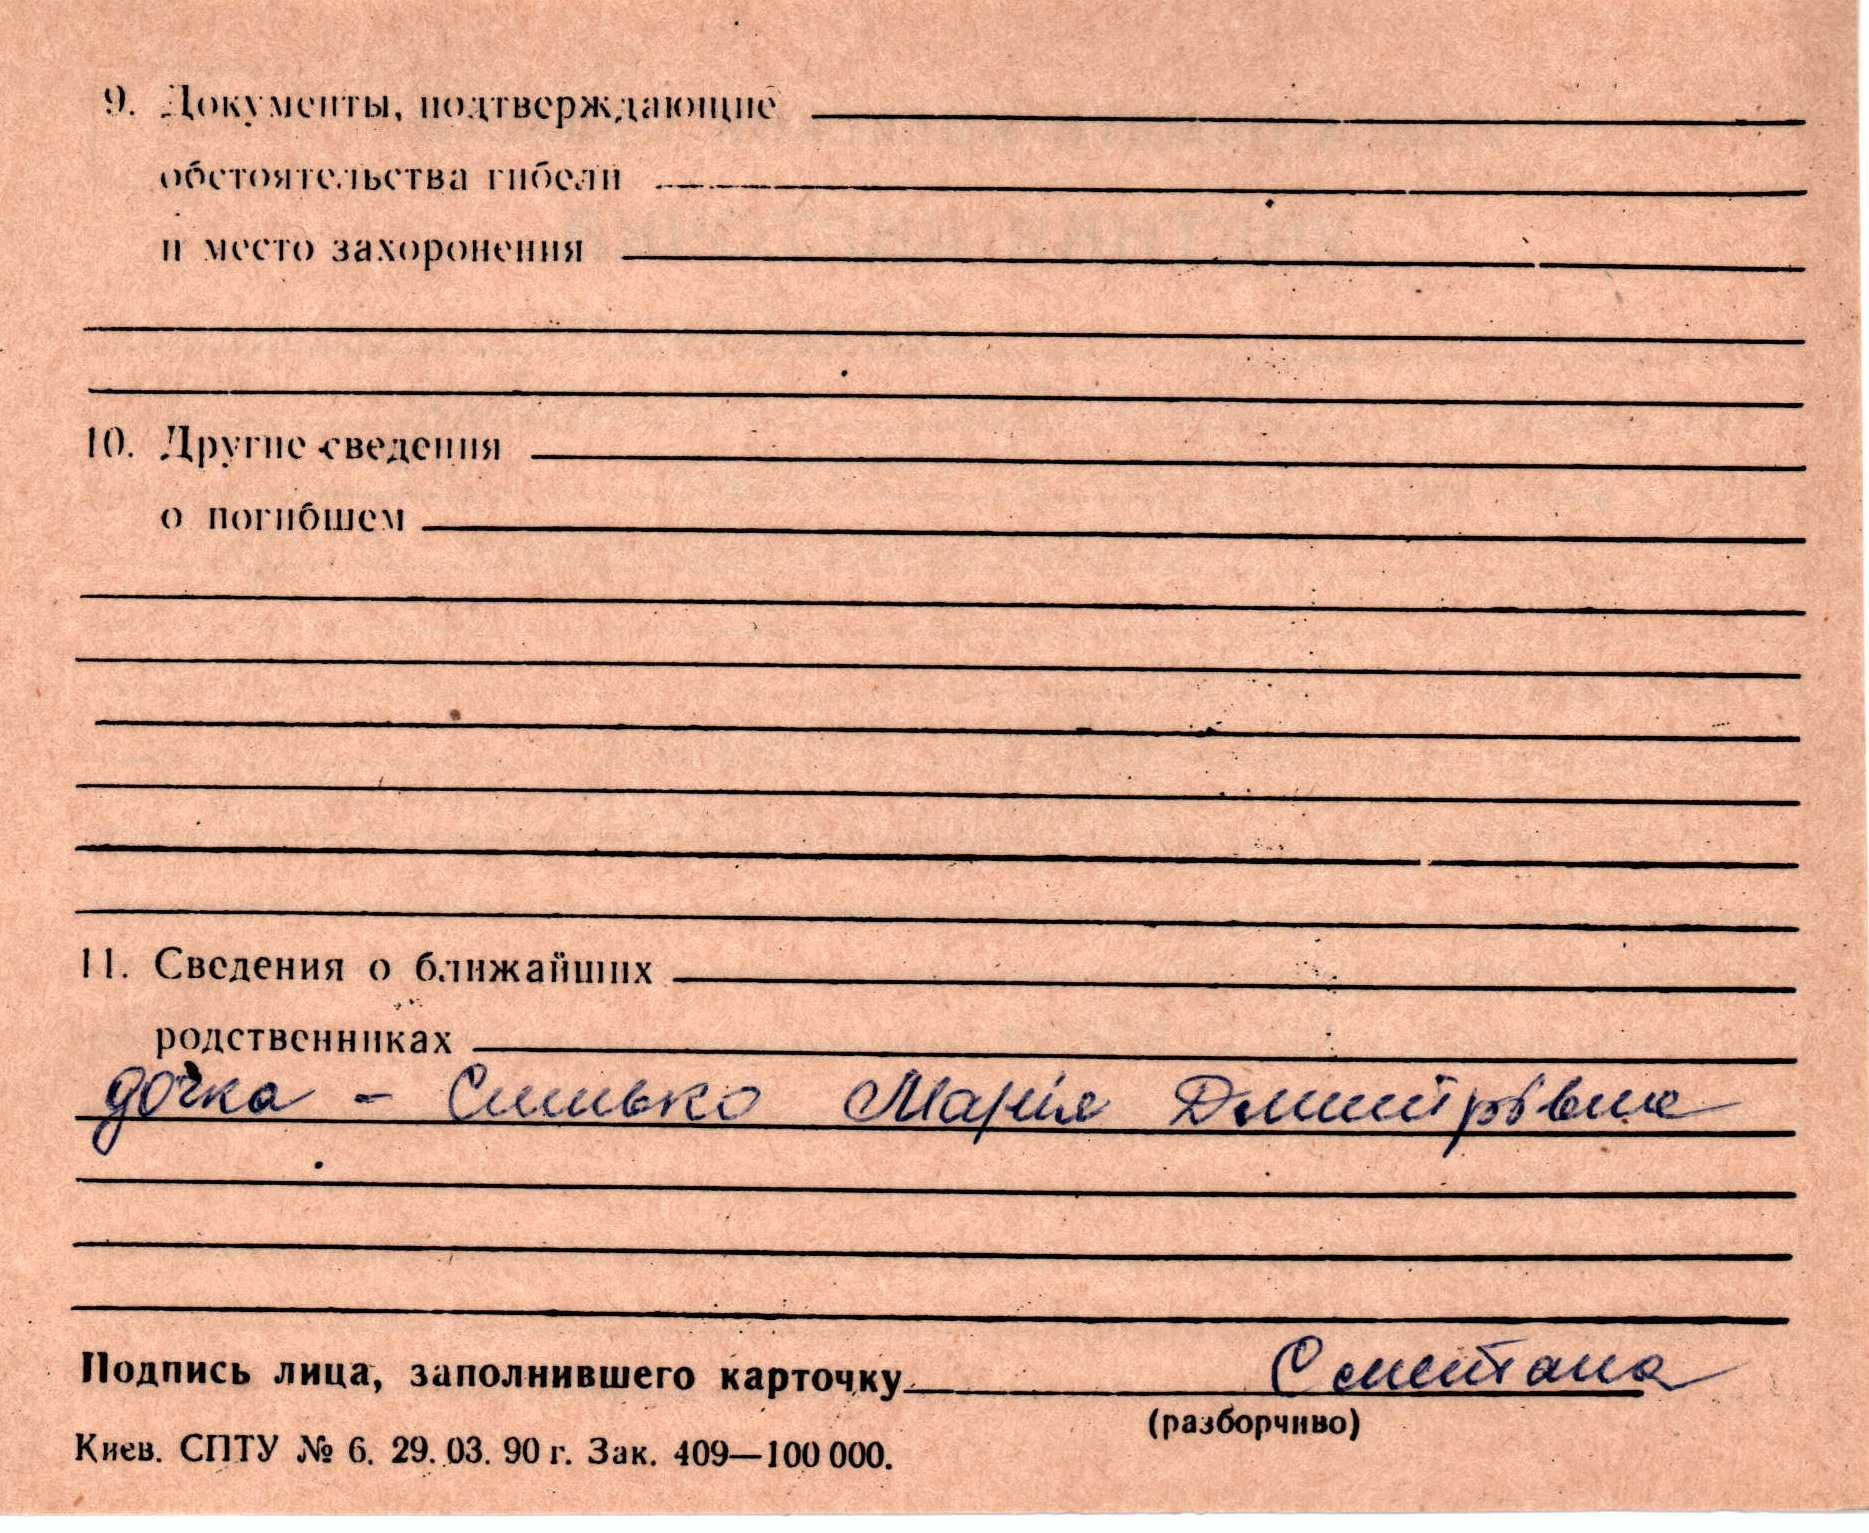 9. Документы, подтверждающие
обстоятельства гибели
и место захоронения
10. Другие сведения
о погибшем
11. Сведения о ближайших
родственниках
дочка - Марія Дмитрівна
Подпись лица, заполнившего карточку Сметана
(разборчиво)
Киев. СПТУ № 6. 29. 03. 90 г. Зак. 409—100 000.